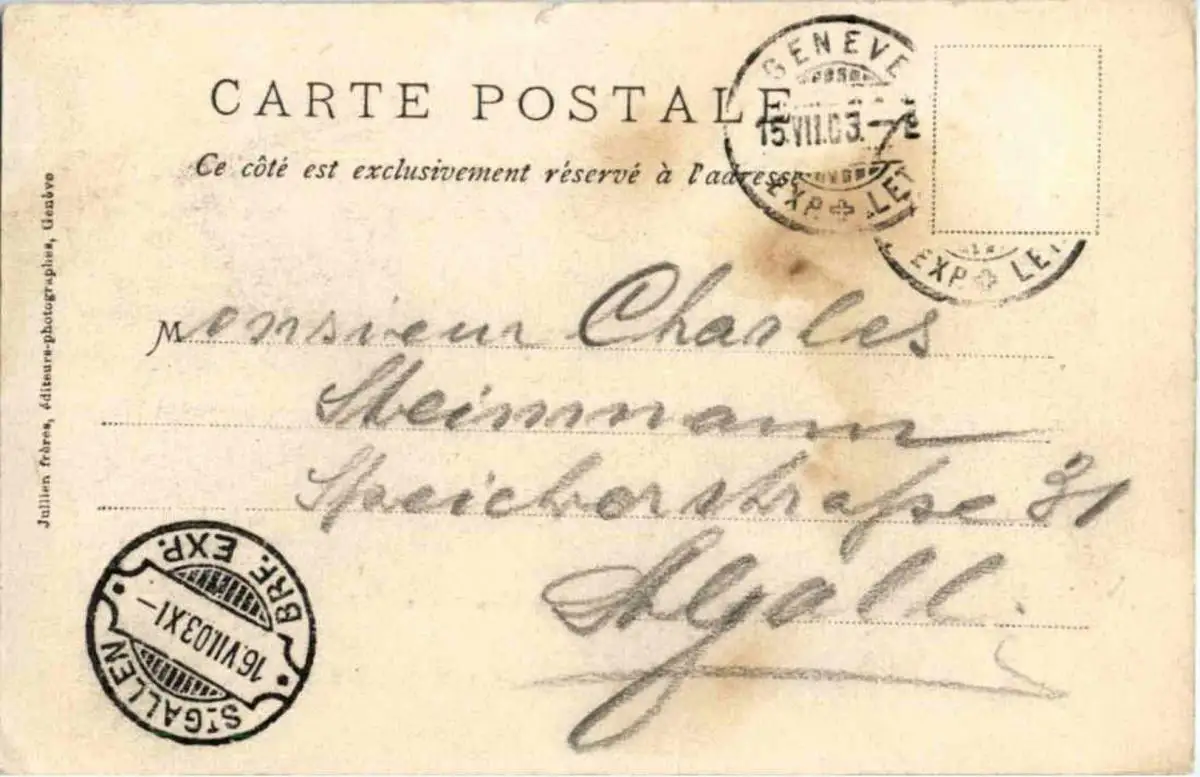 CARTE POSTALE
Ce côté est exclusivement réservé à l'adresse
GENEVE
15.VII.03.-7
EXP. LET
EXP. LET
Monsieur Charles
Steinmann
Speicherstraße 31
St Gall.
Jullien frères, éditeurs-photographes, Genève
BRF. EXP.
16.VII.03.XI-
ST GALLEN